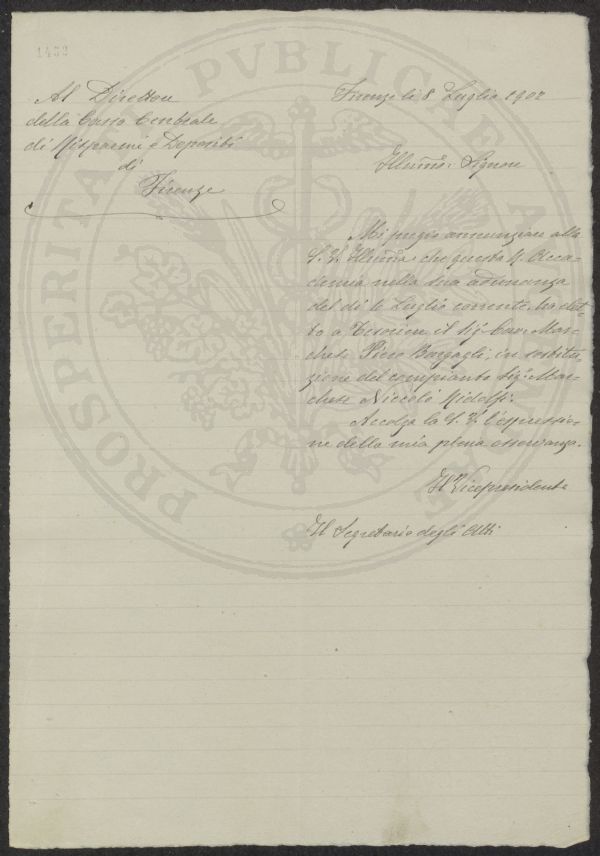 1432
Al Direttore
della Cassa Centrale
di Risparmi e Depositi
di
Firenze
Firenze li 8 Luglio 1902
Illumo: Signore
Mi pregio annunziare alla
S. V. Illuma: che questa R. Acca-
demia nella sua adunanza
del di 6 Luglio corrente, ha elet-
to a Tesoriere il Sig: Cav: Mar-
chese Piero Bargagli, in sostitu-
zione del compianto Sig: Mar-
chese Niccolò Ridolfi.
Accolga la S. V. l'espressio-
ne della mia piena osservanza.
Il Vicepresidente
Il Segretario degli Atti
PROSPERITATI PVBLICAE